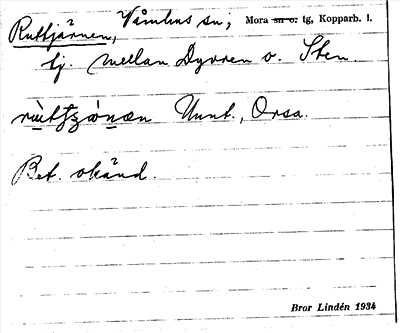 Ruttjärnen, Våmhus sn; Mora sn o. tg, Kopparb. l.
tj. mellan Dyvren o. Sten.
Unnt., Orsa.
Bet. okänd.
Bror Lindén 1934